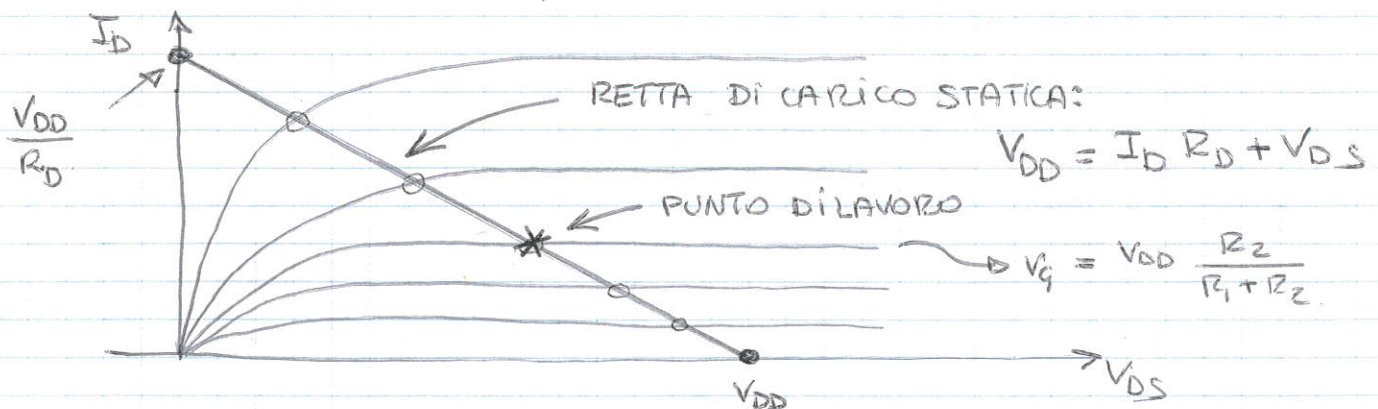 I_D
RETTA DI CARICO STATICA:
V_DD / R_D
V_DD = I_D R_D + V_DS
PUNTO DI LAVORO
V_G = V_DD R_2 / (R_1 + R_2)
V_DD
V_DS